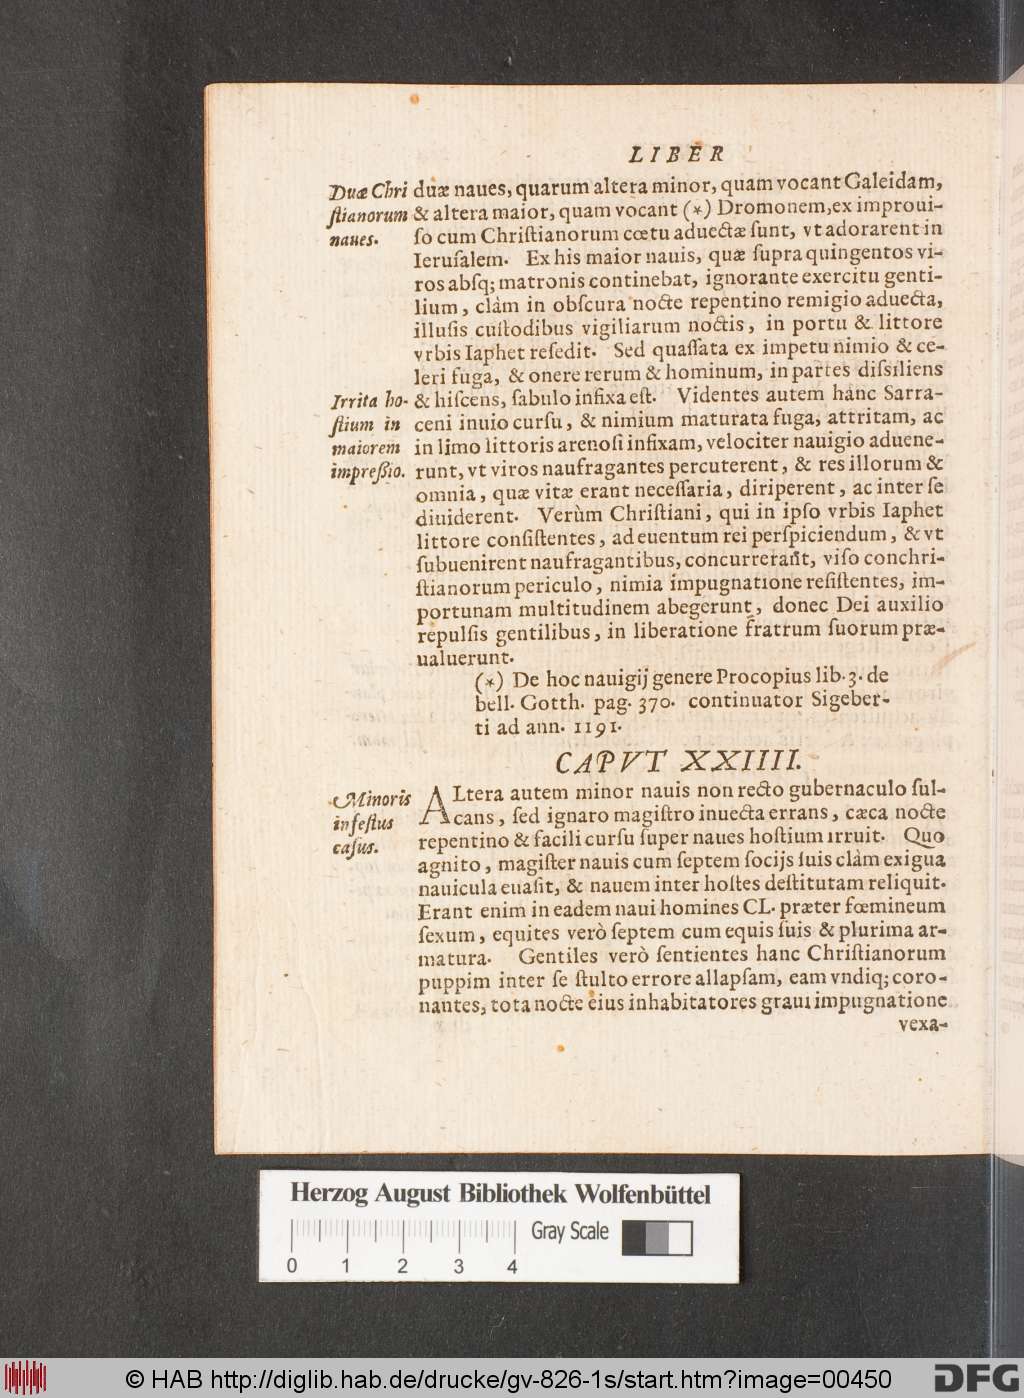 LIBER
Duæ Chri
ſtianorum
naues.
duæ naues, quarum altera minor, quam vocant Galeidam,
& altera maior, quam vocant (*) Dromonem, ex improui-
ſo cum Chriſtianorum cœtu aduectæ ſunt, vt adorarent in
Ieruſalem. Ex his maior nauis, quæ ſupra quingentos vi-
ros abſq; matronis continebat, ignorante exercitu genti-
lium, clàm in obſcura nocte repentino remigio aduecta,
illuſis cuſtodibus vigiliarum noctis, in portu & littore
vrbis Iaphet reſedit. Sed quaſſata ex impetu nimio & ce-
leri fuga, & onere rerum & hominum, in partes diſsiliens
Irrita ho-
ſtium in
maiorem
impreßio.
& hiſcens, ſabulo infixa eſt. Videntes autem hanc Sarra-
ceni inuio curſu, & nimium maturata fuga, attritam, ac
in limo littoris arenoſi infixam, velociter nauigio aduene-
runt, vt viros naufragantes percuterent, & res illorum &
omnia, quæ vitæ erant neceſſaria, diriperent, ac inter ſe
diuiderent. Verùm Chriſtiani, qui in ipſo vrbis Iaphet
littore conſiſtentes, ad euentum rei perſpiciendum, & vt
ſubuenirent naufragantibus, concurrerant, viſo conchri-
ſtianorum periculo, nimia impugnatione reſiſtentes, im-
portunam multitudinem abegerunt, donec Dei auxilio
repulſis gentilibus, in liberatione fratrum ſuorum præ-
ualuerunt.
(*) De hoc nauigij genere Procopius lib. 3. de
bell. Gotth. pag. 370. continuator Sigeber-
ti ad ann. 1191.
CAPVT XXIIII.
Minoris
infeſtus
caſus.
ALtera autem minor nauis non recto gubernaculo ſul-
cans, ſed ignaro magiſtro inuecta errans, cæca nocte
repentino & facili curſu ſuper naues hoſtium irruit. Quo
agnito, magiſter nauis cum ſeptem ſocijs ſuis clàm exigua
nauicula euaſit, & nauem inter hoſtes deſtitutam reliquit.
Erant enim in eadem naui homines CL. præter fœmineum
ſexum, equites verò ſeptem cum equis ſuis & plurima ar-
matura. Gentiles verò ſentientes hanc Chriſtianorum
puppim inter ſe ſtulto errore allapſam, eam vndiq; coro-
nantes, tota nocte eius inhabitatores graui impugnatione
vexa-
Herzog August Bibliothek Wolfenbüttel
Gray Scale
0 1 2 3 4
© HAB http://diglib.hab.de/drucke/gv-826-1s/start.htm?image=00450
DFG